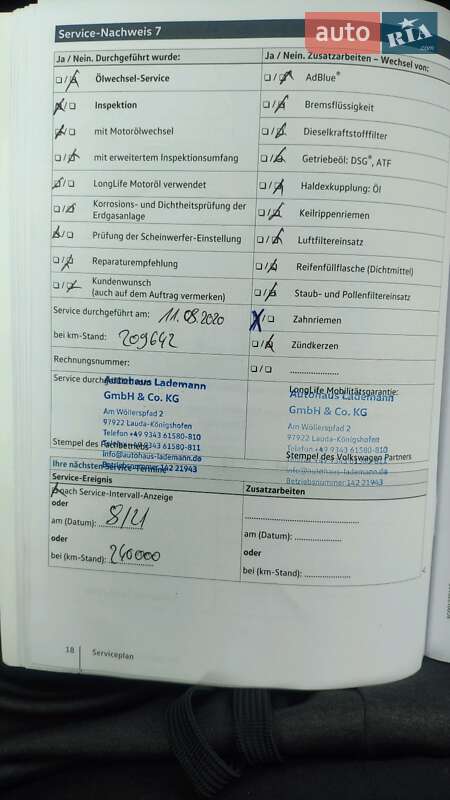 Service-Nachweis 7
auto RIA.com
Ja / Nein. Durchgeführt wurde:
Ölwechsel-Service
Inspektion
mit Motorölwechsel
mit erweitertem Inspektionsumfang
LongLife Motoröl verwendet
Korrosions- und Dichtheitsprüfung der
Erdgasanlage
Prüfung der Scheinwerfer-Einstellung
Reparaturempfehlung
Kundenwunsch
(auch auf dem Auftrag vermerken)
Service durchgeführt am: 11.08.2020
bei km-Stand: 209642
Rechnungsnummer:
Ja / Nein. Zusatzarbeiten – Wechsel von:
AdBlue®
Bremsflüssigkeit
Dieselkraftstofffilter
Getriebeöl: DSG®, ATF
Haldexkupplung: Öl
Keilrippenriemen
Luftfiltereinsatz
Reifenfüllflasche (Dichtmittel)
Staub- und Pollenfiltereinsatz
Zahnriemen
Zündkerzen
....................
Service durchgeführt
Autohaus Lademann
GmbH & Co. KG
Am Wöllerspfad 2
97922 Lauda-Königshofen
Telefon +49 9343 61580-810
Telefax +49 9343 61580-811
Info@autohaus-lademann.de
Betriebsnummer 142 21943
Stempel des Fachbetriebs
LongLife Mobilitätsgarantie:
Autohaus Lademann
GmbH & Co. KG
Am Wöllerspfad 2
97922 Lauda-Königshofen
Telefon +49 9343 61580-810
Telefax +49 9343 61580-811
info@autohaus-lademann.de
Betriebsnummer 142 21943
Stempel des Volkswagen Partners
Ihre nächsten Service-Termine
Service-Ereignis
nach Service-Intervall-Anzeige
oder
am (Datum): 8/21
oder
bei (km-Stand): 240000
Zusatzarbeiten
am (Datum): ....................
oder
bei (km-Stand): ....................
18 Serviceplan